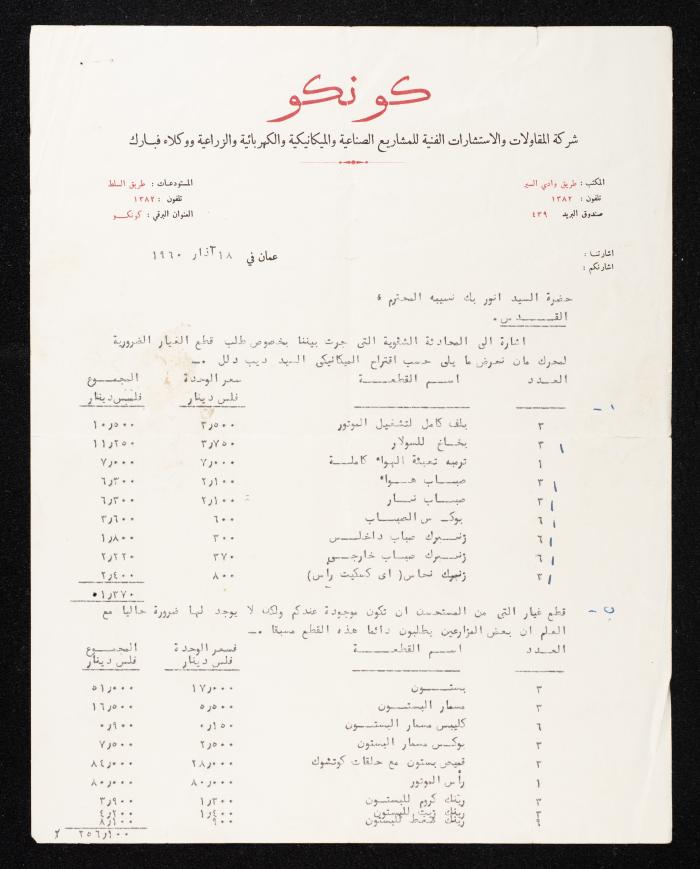 كونكو
شركة المقاولات والاستشارات الفنية للمشاريع الصناعية والميكانيكية والكهربائية والزراعية ووكلاء فبارك
المكتب : طريق وادي السير
المستودعات : طريق السلط
تلفون : ١٣٨٢
تلفون : ١٣٨٢
صندوق البريد ٤٣٩
العنوان البرقي : كونكو
اشارتنا :
عمان في ١٨ آذار ١٩٦٠
اشارتكم :
حضرة السيد انور بك نسيبه المحترم ،
القدس.
اشارة الى المحادثة الشفوية التي جرت بيننا بخصوص طلب قطع الغيار الضرورية
لمحرك مان نعرض ما يلي حسب اقتراح الميكانيكي السيد ديب دلل .ـ
العدد اسم القطعة سعر الوحدة المجموع
فلس دينار فلس دينار
ا -
٣ بلف كامل لتشغيل الموتور ٣٫٥٠٠ ١٠٫٥٠٠
٣ بخاخ للسولار ٣٫٧٥٠ ١١٫٢٥٠
١ ترمبه تعبئة الهواء كاملة ٧٫٠٠٠ ٧٫٠٠٠
٣ صباب هواء ٢٫١٠٠ ٦٫٣٠٠
٣ صباب نار ٢٫١٠٠ ٦٫٣٠٠
٦ بوكس الصباب ٦٠٠ ٣٫٦٠٠
٦ زنبرك صباب داخلي ٣٠٠ ١٫٨٠٠
٦ زنبرك صباب خارجي ٣٧٠ ٢٫٢٢٠
٣ زنبرك نحاس( اى كسكيت رأس) ٨٠٠ ٢٫٤٠٠
٥١٫٣٧٠
ب - قطع غيار التي من المستحسن ان تكون موجودة عندكم ولكن لا يوجد لها ضرورة حاليا مع
العلم ان بعض المزارعين يطلبون دائما هذه القطع مسبقا .ـ
العدد اسم القطعة سعر الوحدة المجموع
فلس دينار فلس دينار
٣ بستون ١٧٫٠٠٠ ٥١٫٠٠٠
٣ مسمار البستون ٥٫٥٠٠ ١٦٫٥٠٠
٦ كليبس مسمار البستون ٠٫١٥٠ ٠٫٩٠٠
٣ بوكس مسمار البستون ٢٫٥٠٠ ٧٫٥٠٠
٣ قميص بستون مع حلقات كوتشوك ٢٨٫٠٠٠ ٨٤٫٠٠٠
١ رأس الموتور ٨٠٫٠٠٠ ٨٠٫٠٠٠
٣ رينك كروم للبستون ١٫٣٠٠ ٣٫٩٠٠
٣ رينك زيت للبستون ١٫٤٠٠ ٤٫٢٠٠
٩ رينك ضغط للبستون ٩٠٠ ٨٫١٠٠
٢٥٦٫١٠٠